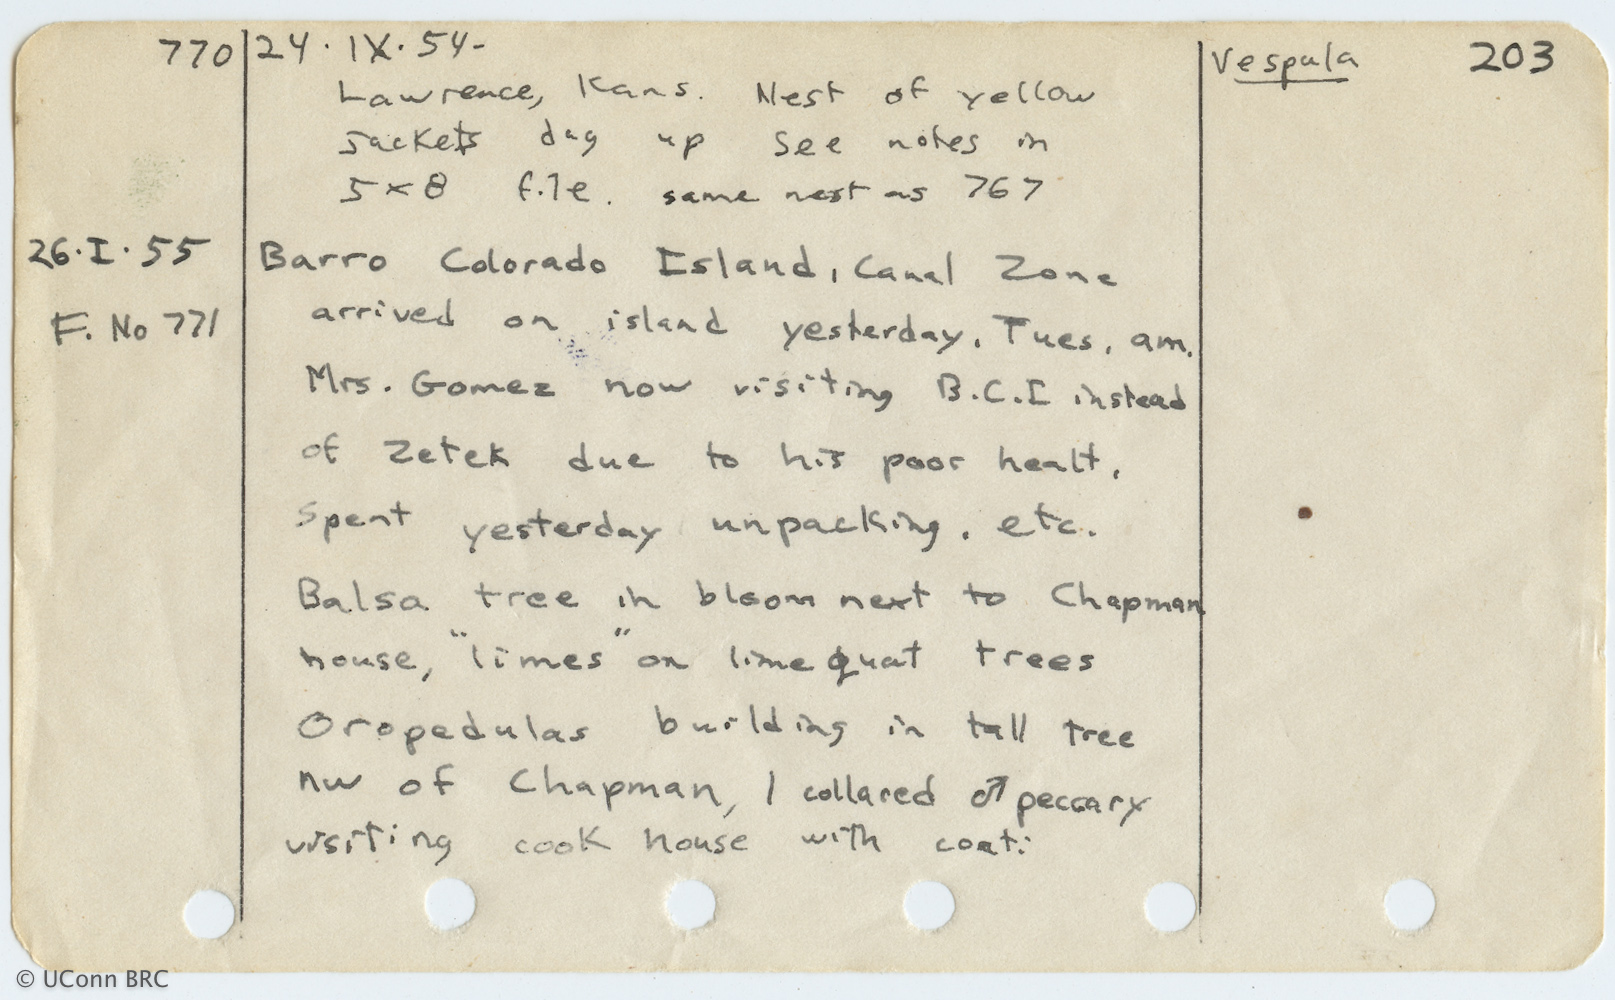 770 24·IX·54- Vespula 203
Lawrence, Kans. Nest of yellow
jackets dug up See notes in
5x8 file. same nest as 767
26·I·55 Barro Colorado Island, Canal Zone
F. No 771 arrived on island yesterday, Tues, am.
Mrs. Gomez now visiting B.C.I instead
of Zetek due to his poor healt.
Spent yesterday unpacking, etc.
Balsa tree in bloom next to Chapman
house, "limes" on limequat trees
Oropedulas building in tall tree
nw of Chapman, 1 collared ♂ peccary
visiting cook house with coati
© UConn BRC